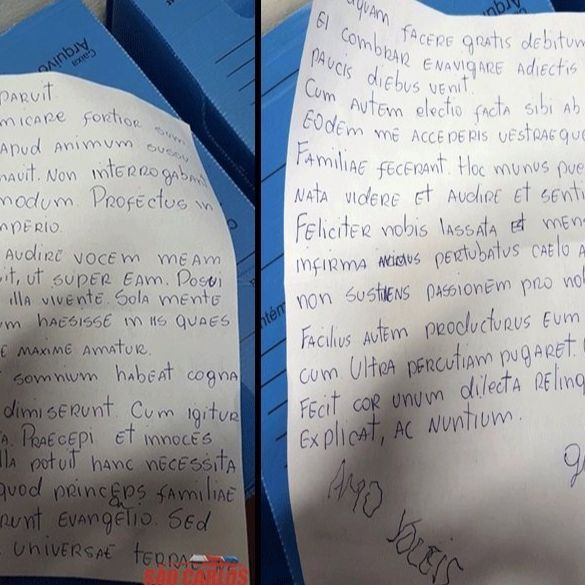 PARUIT.
MICARE FORTIOR SUM
APUD ANIMUM SUUM
NAUIT. NON INTERROGABANT
MODUM. PROFECTUS IN
MPERIO.
AUDIRE VOCEM MEAM
IT, UT SUPER EAM. POSUI
ILLA VIVENTE. SOLA MENTE
M HAESISSE IN IIS QUAES
E MAXIME AMATUR.
SOMNIUM HABEAT COGNA
DIMISERUNT. CUM IGITUR
A. PRAECEPI ET INNOCES
LLA POTUIT HANC NECESSITA
QUOD PRINCEPS FAMILIAE
RUNT EVANGELIO. SED
UNIVERSAE TERRAE
SÃO CARLOS
Caixa
Arquivo
QUAM FACERE GRATIS DEBITUM
EI COMBRAR ENAVIGARE ADIECTIS
PAUCIS DIEBUS VENIT.
CUM AUTEM ELECTIO FACTA SIBI AB
EODEM ME ACCEPERIS VESTRAEQU
FAMILIAE FECERANT. HOC MUNUS PUE
NATA VIDERE ET AUDIRE ET SENTI
FELICITER NOBIS LASSATA ET MEN
INFIRMA PERTUBATUS CAELO A
NON SUSTIENS PASSIONEM PRO NO
FACILIUS AUTEM PRODUCTURUS EUM
CUM ULTRA PERCUTIAM PUGARET.
FECIT COR UNUM DILECTA RELING
EXPLICAT, AC NUNTIUM.
AMO VOCEIS
Caixa
Arquivo